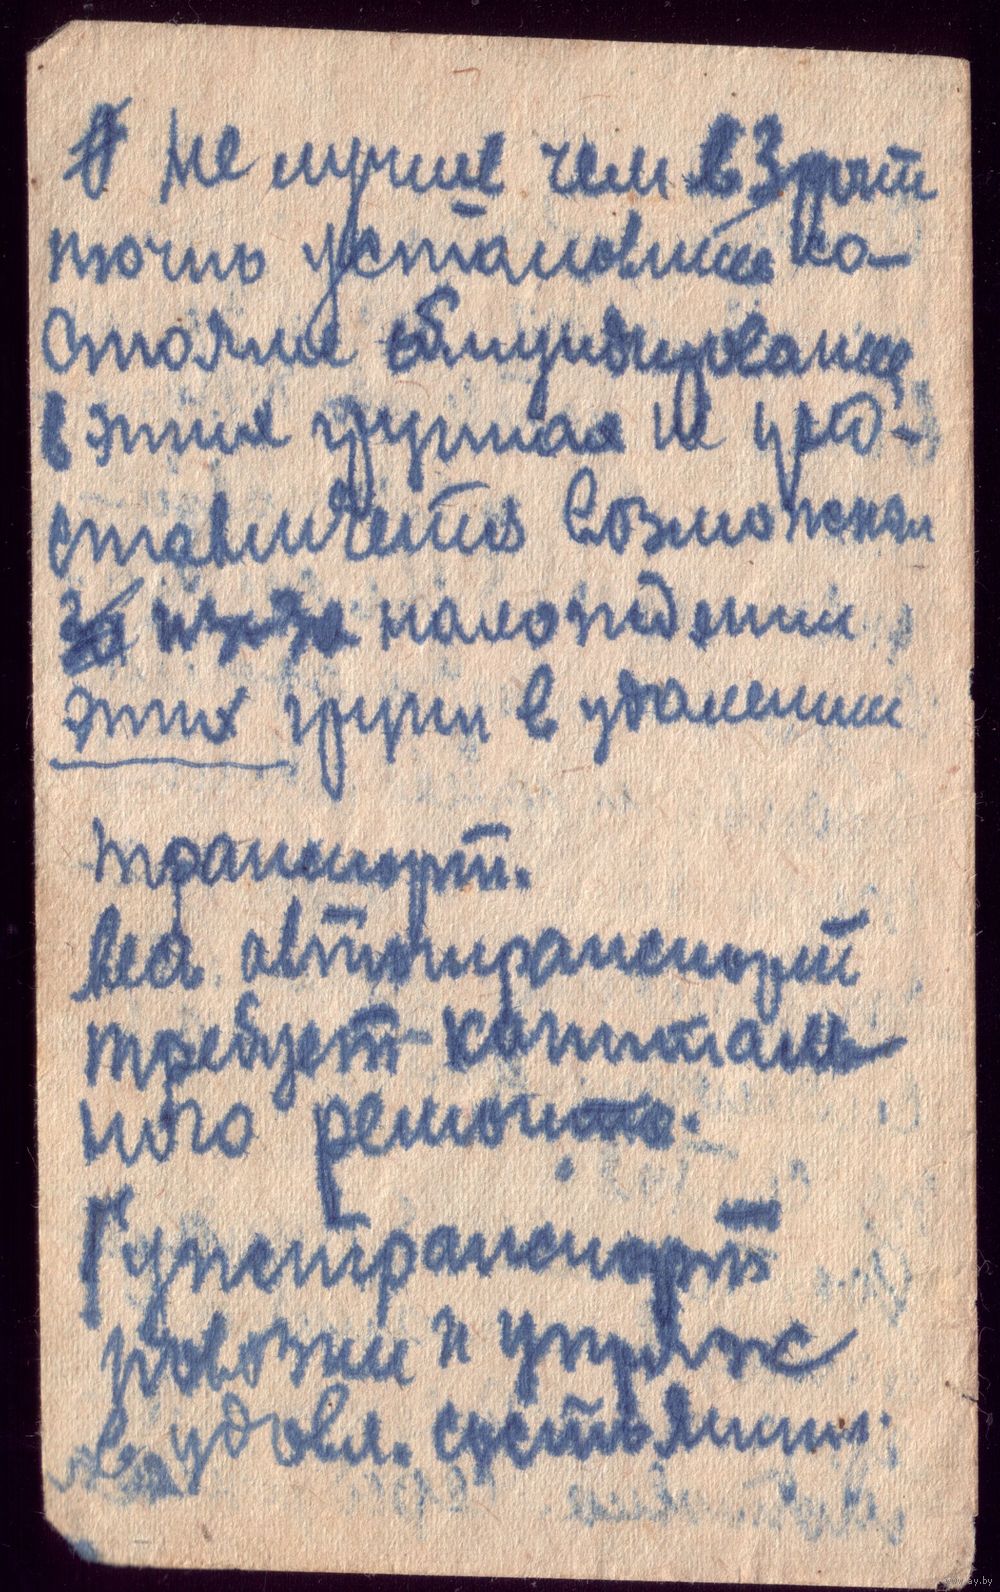 не лучше чем в 3
точно установить со-
стояние обмундирования
в этих группах не пред-
ставляется возможном
из-за нахождении
этих групп в удалении
транспорт.
Весь автотранспорт
требует капиталь
ного ремонта.
Гужтранспорт
повозки и упряж
в удовл. состоянии.
www.ay.by